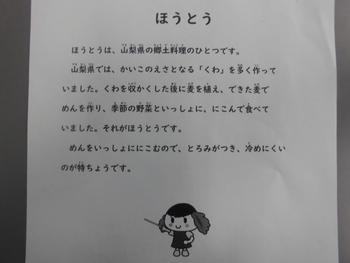 ほうとう
ほうとうは、山梨県の郷土料理のひとつです。
山梨県では、かいこのえさとなる「くわ」を多く作って
いました。くわを収かくした後に麦を植え、できた麦で
めんを作り、季節の野菜といっしょに、にこんで食べて
いました。それがほうとうです。
めんをいっしょににこむので、とろみがつき、冷めにくい
のが特ちょうです。